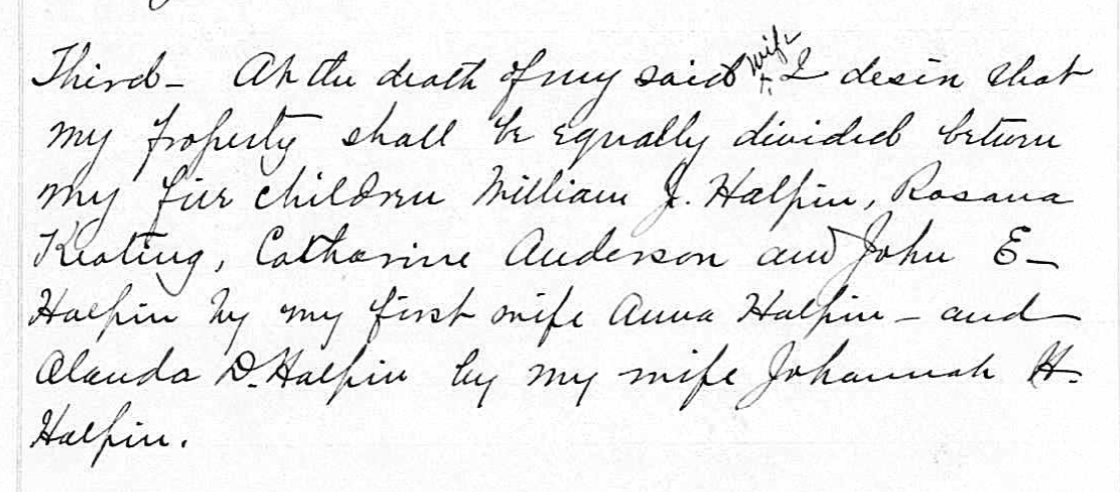 Third – At the death of my said wife I desire that
my property shall be equally divided between
my five children William J. Halpin, Rosana
Keating, Catharine Anderson and John E –
Halpin by my first wife Anna Halpin – and
Alauda D. Halpin by my wife Johannah H.
Halpin.